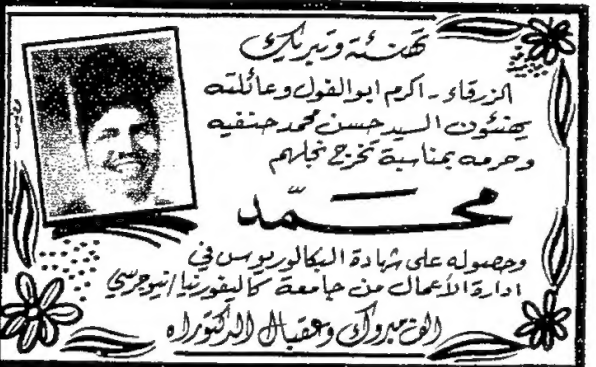 تهنئة وتبريك
الزرقاء - اكرم ابوالفول وعائلته
يهنئون السيد حسن محمد حنفيه
وحرمه بمناسبة تخرج نجلهم
محمّد
وحصوله على شهادة البكالوريوس في
ادارة الأعمال من جامعة كاليفورنيا/نيوجرسي
الف مبروك وعقبال الدكتوراه